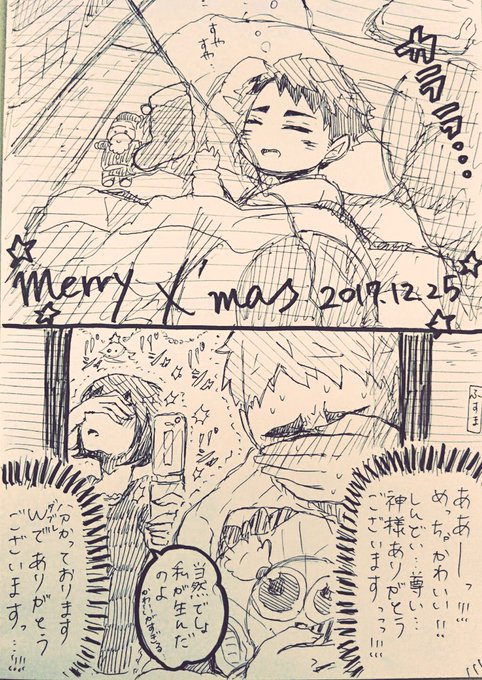 すやすや…
カラッ…
Merry X'mas 2017.12.25
ふすま
ああーっ!!!
めっちゃかわいい!!
しんどい…尊い…
神様ありがとう
ございますっっっ!!!
当然でしょ
私が生んだ
のよ
かわいいがすぎる…
分かっております
ダブル
Wでありがとう
ございますっ…!!!